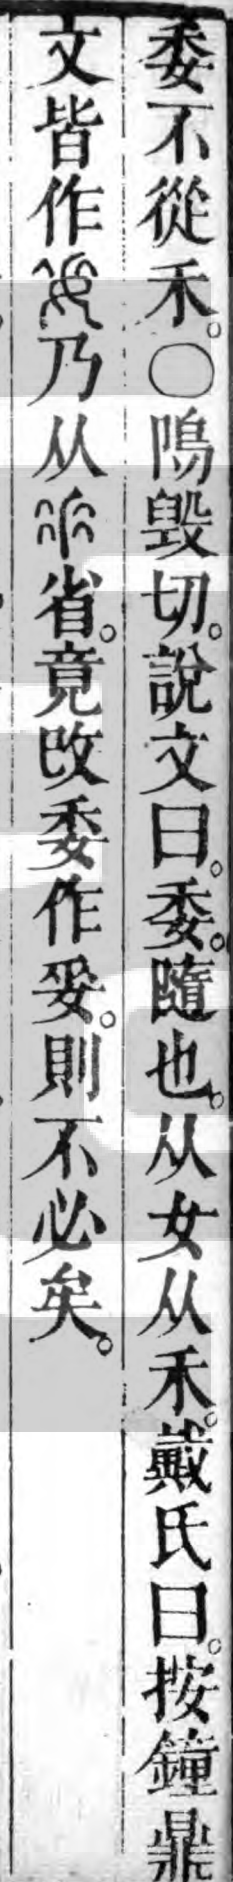 委不從禾。○隖毁切。說文曰。委。隨也。从女从禾。戴氏曰。按鐘鼎
文皆作乃从省。竟改委作妥。則不必矣。